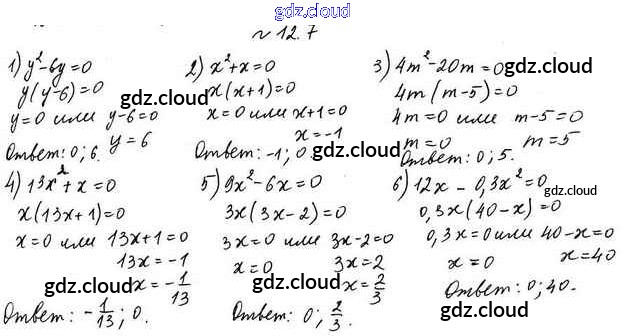 gdz.cloud
№ 12.7
1) y²-6y=0
y(y-6)=0
y=0 или y-6=0
y=6
Ответ: 0; 6.
2) x²+x=0
x(x+1)=0
x=0 или x+1=0
x=-1
Ответ: -1; 0.
3) 4m²-20m=0
4m(m-5)=0
4m=0 или m-5=0
m=0 m=5
Ответ: 0; 5.
4) 13x²+x=0
x(13x+1)=0
x=0 или 13x+1=0
13x=-1
x=-1/13
Ответ: -1/13; 0.
5) 9x²-6x=0
3x(3x-2)=0
3x=0 или 3x-2=0
x=0 3x=2
x=2/3
Ответ: 0; 2/3.
6) 12x-0,3x²=0
0,3x(40-x)=0
0,3x=0 или 40-x=0
x=0 x=40
Ответ: 0; 40.
gdz.cloud
gdz.cloud
gdz.cloud
gdz.cloud
gdz.cloud
gdz.cloud
gdz.cloud
gdz.cloud
gdz.cloud
gdz.cloud
gdz.cloud
gdz.cloud